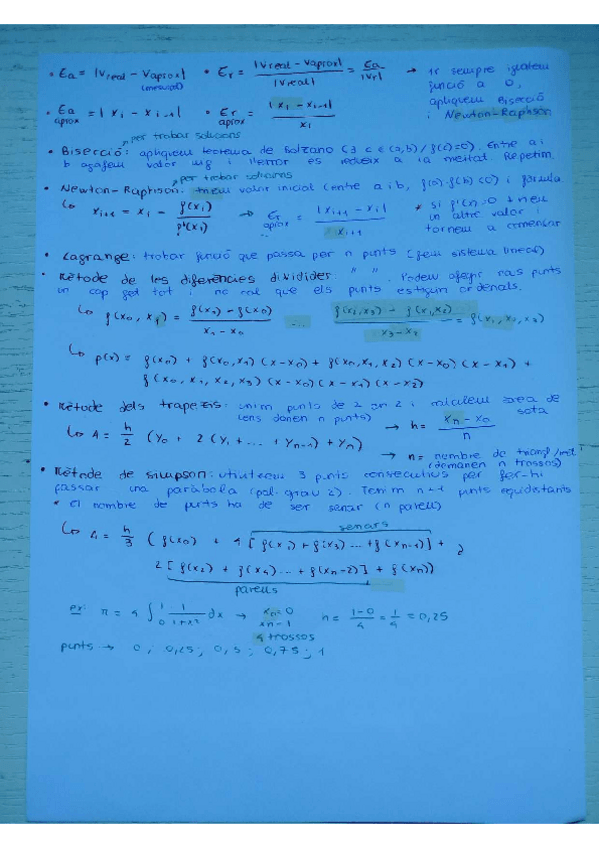 • Ea = |Vreal - Vaprox| • Er = |Vreal - Vaprox| / |Vreal| = Ea / |Vr| → 1r sempre igualem
funció a 0,
apliquem Bisecció
i Newton-Raphson
• Ea aprox = | xi - xi-1| • Er aprox = | xi - xi-1| / xi
per trobar solucions
• Bisecció: apliquem teorema de Bolzano (∃ c ∈ (a,b) / f(c)=0). Entre a i
b agafem valor mig i l'error es redueix a la meitat. Repetim.
per trobar solucions
• Newton-Raphson: valor inicial (entre a i b, f(a)·f(b)<0) i fórmula
↳ xi+1 = xi - f(xi) / f'(xi) → Er aprox = |xi+1 - xi| / xi+1 * si f'(x)=0
un altre valor i
tornem a començar
• Lagrange: trobar funció que passa per n punts (fem sistema lineal)
• Mètode de les diferències dividides: " " . Podem afegir punts
un cop fet tot i no cal que els punts estiguin ordenats.
↳ f(x0, x1) = f(x1) - f(x0) / x1 - x0 ...
↳ p(x) = f(x0) + f(x0,x1) (x-x0) + f(x0,x1,x2) (x-x0) (x-x1) +
f(x0, x1, x2, x3) (x-x0) (x-x1) (x-x2)
• Mètode dels trapezis: unim punts de 2 en 2 i calculem àrea de
sota
(ens donen n punts)
↳ A = h/2 (y0 + 2 (y1 + ... + yn-1) + yn) → h = xn - x0 / n
→ n = nombre de
(demanen n trossos)
• Mètode de Simpson: utilitzem 3 punts consecutius per fer-hi
passar una paràbola (pol. grau 2). Tenim n+1 punts equidistants
* el nombre de punts ha de ser senar (n parell)
senars
↳ A = h/3 ( f(x0) + 4 [ f(x1) + f(x3) ... + f(xn-1)] +
2 [ f(x2) + f(x4) ... + f(xn-2)] + f(xn))
parells
ex: π = 4 ∫ 0 1 1 / 1+x² dx → h = 1-0 / 4 = 1/4 = 0,25
4 trossos
punts → 0 ; 0,25 ; 0,5 ; 0,75 ; 1